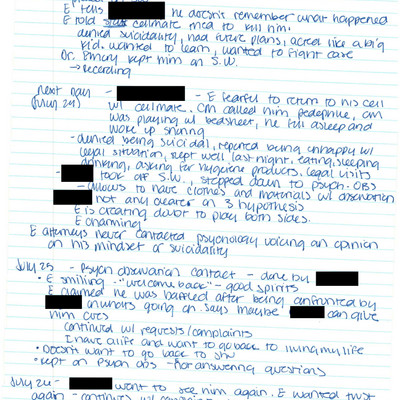 E tells he doesn't remember what happened
E told staff cellmate tried to kill him.
denied suicidality, had future plans, acted like a big
kid. wanted to learn, wanted to fight case
Dr. kept him on S.W.
→ recording
next day - - E fearful to return to his cell
(July 24) w/ cellmate. CM called him pedophile, CM
was playing w/ bedsheet, he fell asleep and
woke up snoring
- denied being suicidal, reported being unhappy w/
legal situation, slept well last night, eating, sleeping
drinking, asking for hygiene products. legal visits
- took off S.W., stepped down to psych. OBS
- allows to have clothes and materials w/ observation
not any clearer on 3 hypothesis
E is creating doubt to play both sides.
E charming
E attorneys never contacted psychology voicing an opinion
on his mindset or suicidality
July 25 - Psych observation contact - done by
• E smiling "welcome back" - good spirits
E claimed he was baffled after being confronted by
on whats going on. says maybe can give
him cues
continued w/ requests/complaints
I have a life and want to go back to living my life
• Doesn't want to go back to SHU
• kept on psych obs - not answering questions
July 26 - went to see him again. E wanted trust
again - continues w/